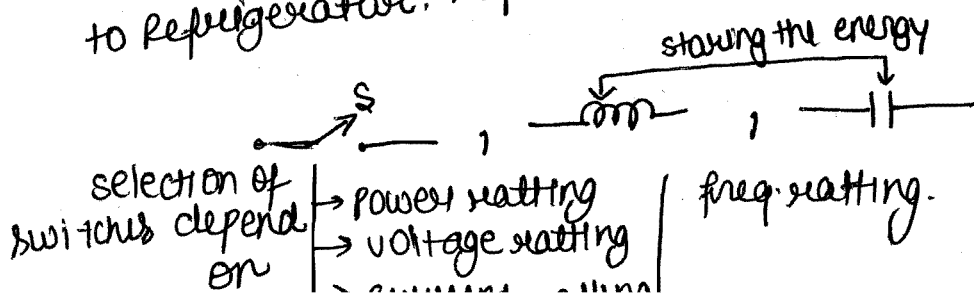 to Refrigerator.
storing the energy
S
, ,
selection of
switches depend
on
→ power ratting
→ voltage ratting
freq. ratting.